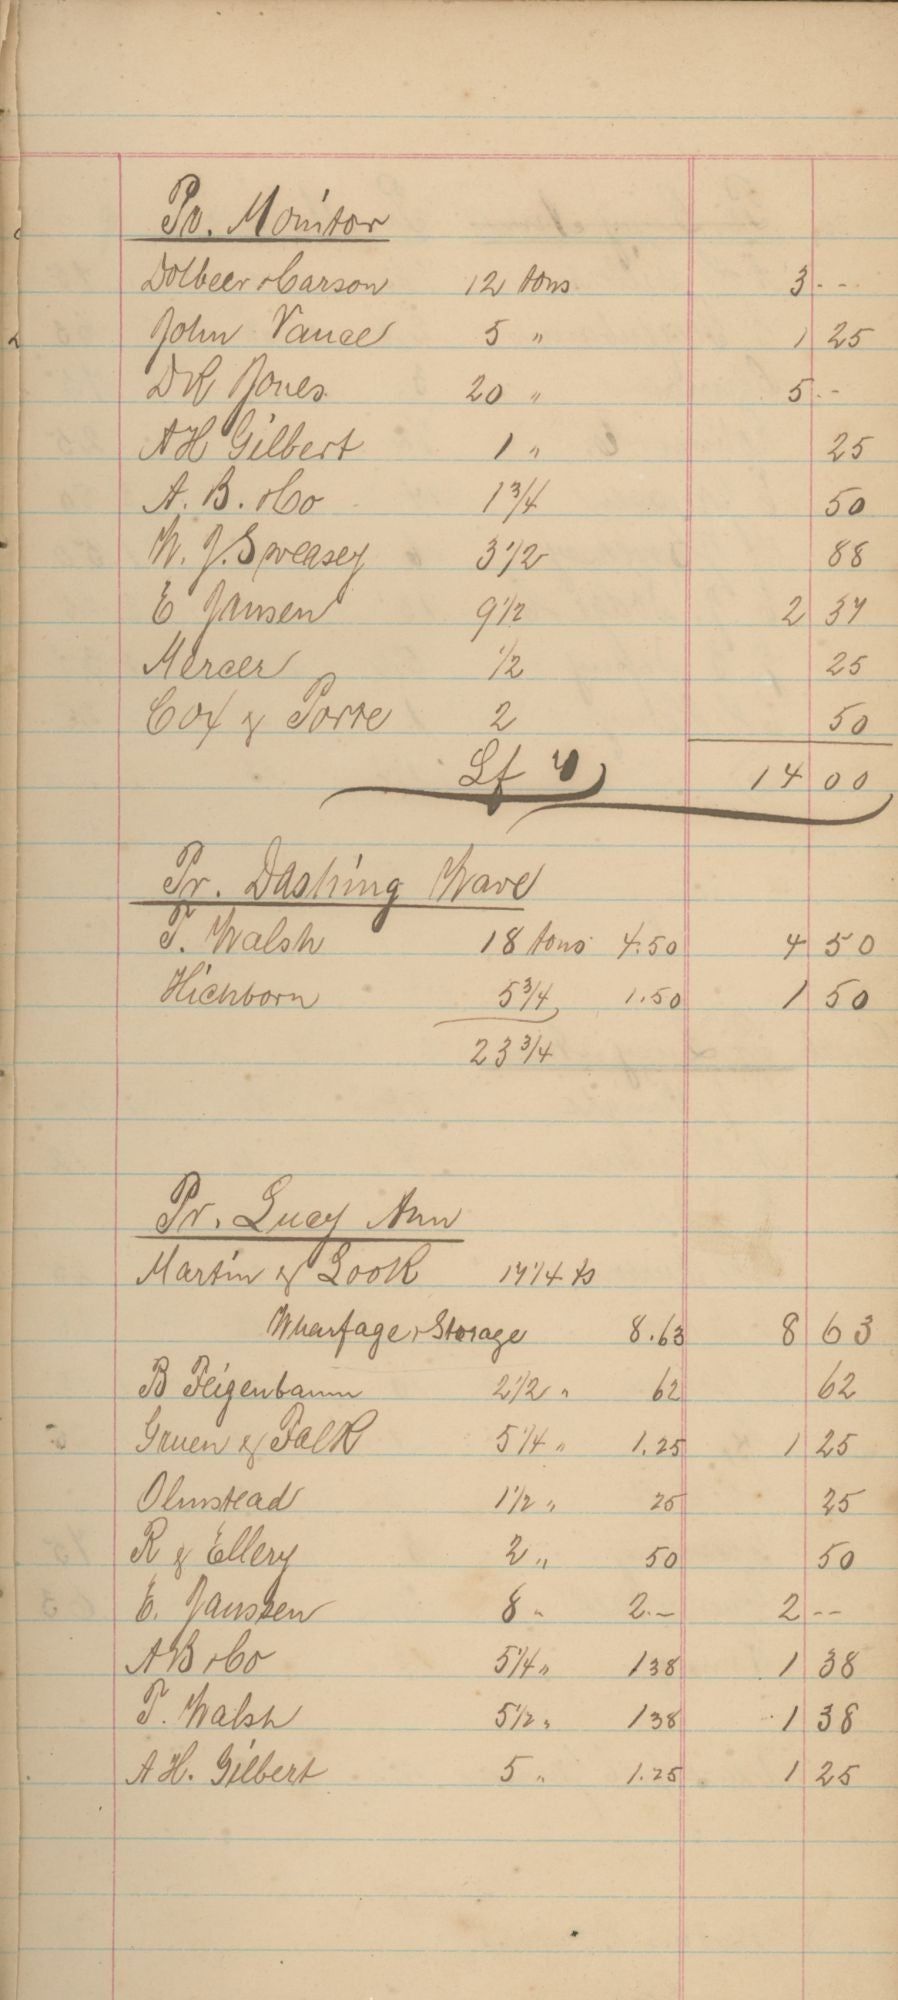 Pr. Monitor
Dolbeer & Carson 12 tons 3 --
John Vance 5 " 1 25
D R Jones 20 " 5 --
A H Gilbert 1 " 25
A. B. & Co 1 3/4 50
W. J. Sweasey 3 1/2 88
E Jansen 9 1/2 2 37
Mercer 1/2 25
Cox & Porre 2 50
Lf 14 00
Pr. Dashing Wave
T. Walsh 18 tons 4.50 4 50
Hichborn 5 3/4 1.50 1 50
23 3/4
Pr. Lucy Ann
Martin & Look 17 1/4 ts
Wharfage & Storage 8.63 8 63
B Feigenbaum 2 1/2 " 62 62
Gruen & Falk 5 1/4 " 1.25 1 25
Olmstead 1 1/2 " 25 25
R & Ellery 2 " 50 50
E. Janssen 8 " 2.-- 2 --
A B & Co 5 1/4 " 1 38 1 38
T. Walsh 5 1/2 " 1 38 1 38
A H. Gilbert 5 " 1.25 1 25